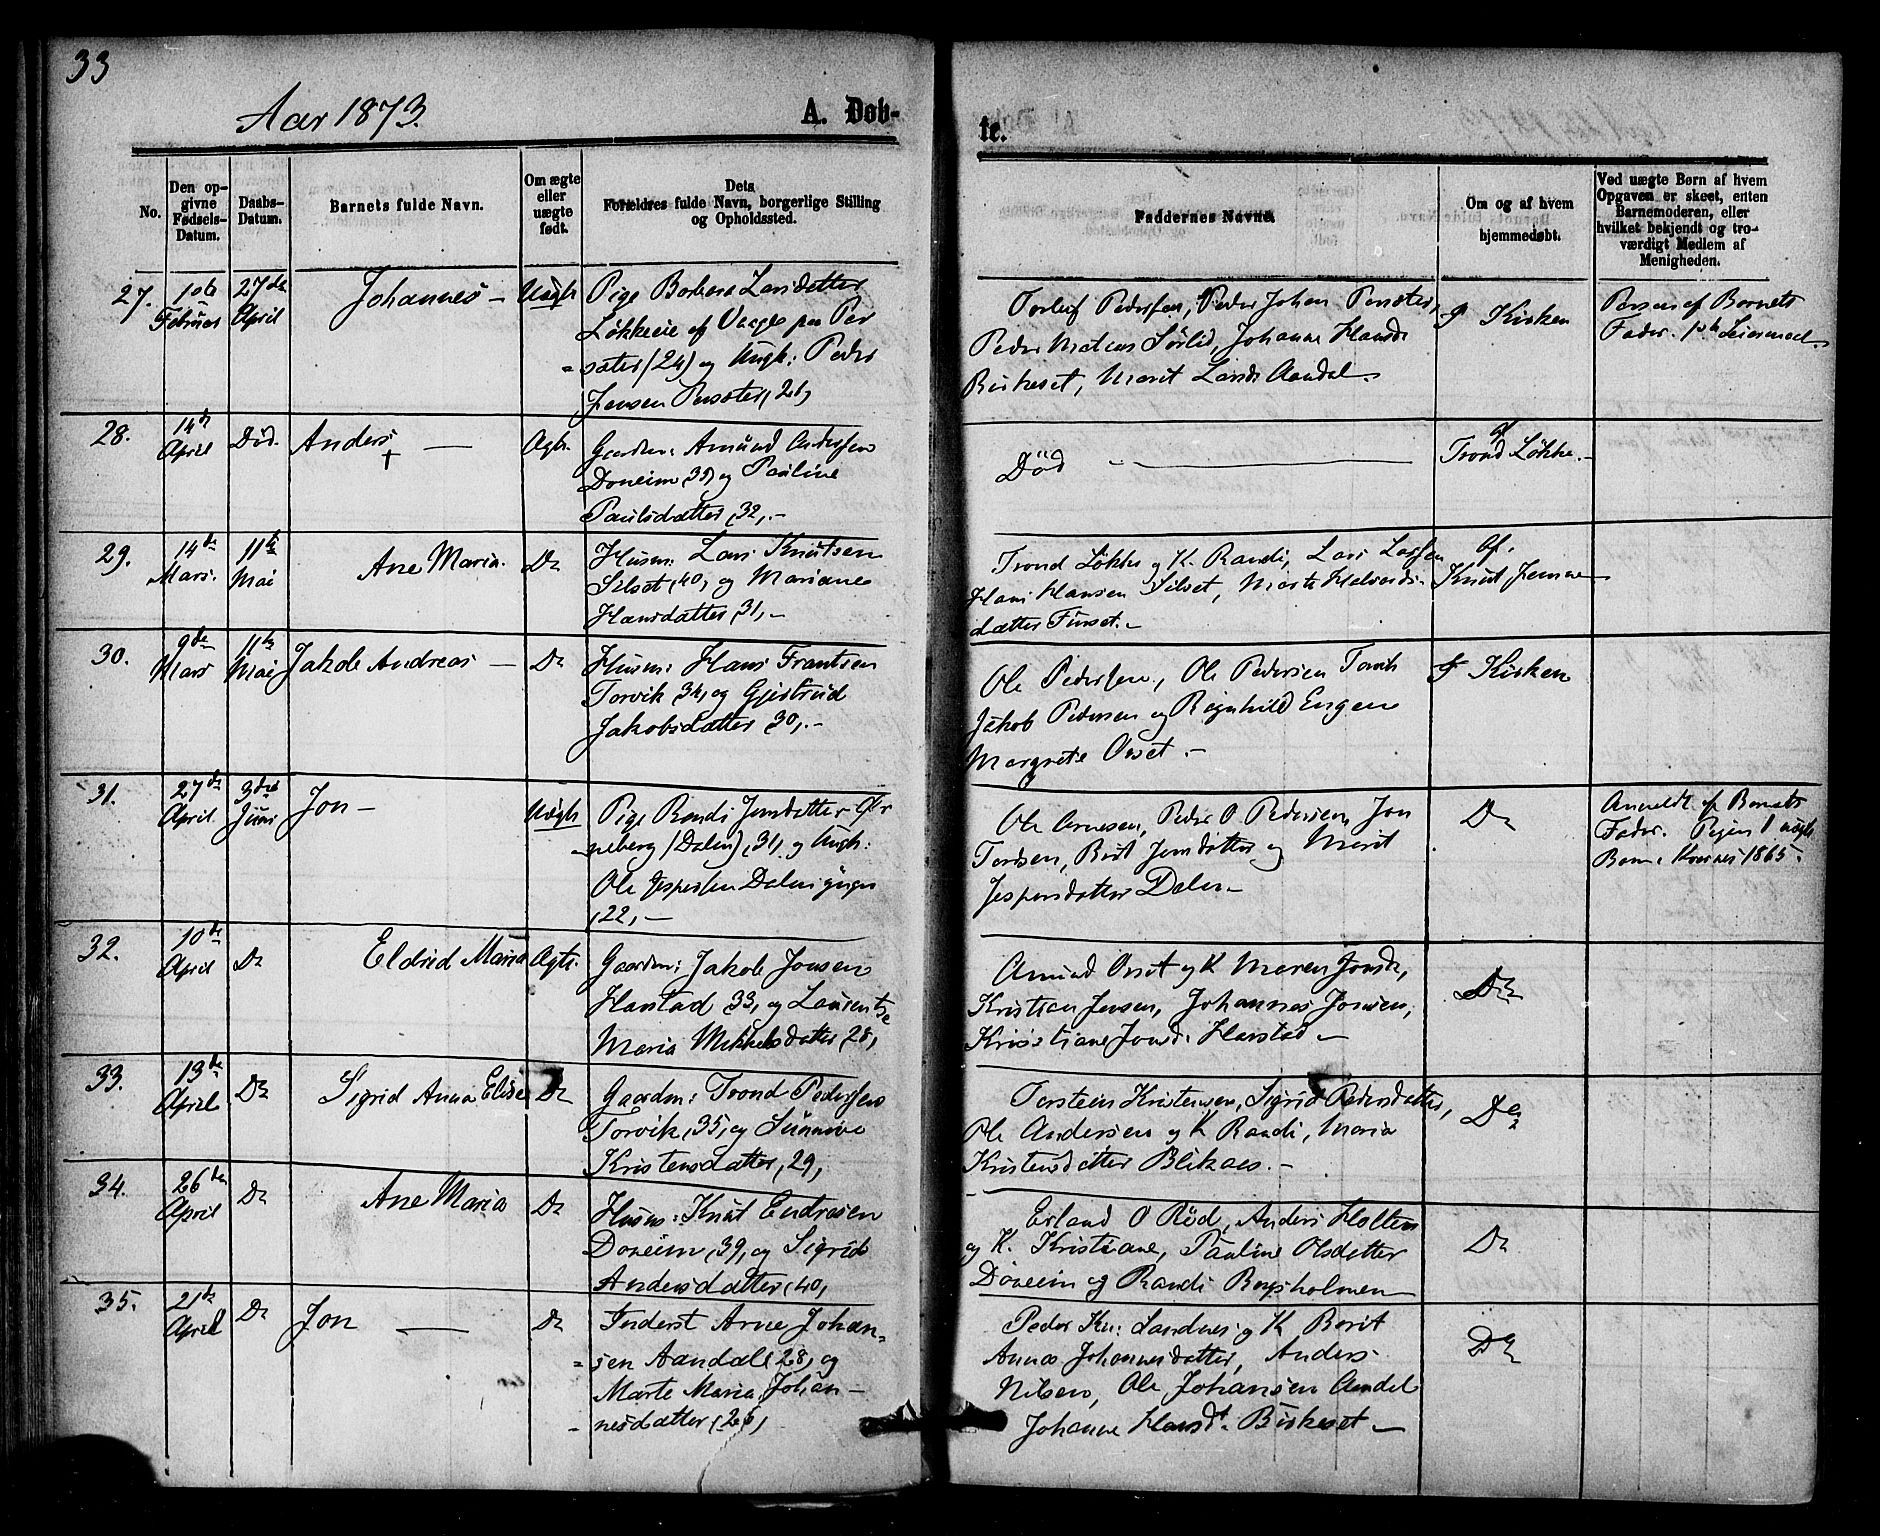 33
Aar 1873.
A. Døb-
te.
No.
Den op-
givne
Fødsels-
Datum.
Daabs-
Datum.
Barnets fulde Navn.
Om ægte
eller
uægte
født.
Dets
Forældres fulde Navn, borgerlige Stilling
og Opholdssted.
Faddernes Navne.
Om og af hvem
hjemmedøbt.
Ved uægte Børn af hvem
Opgaven er skeet, enten
Barnemoderen, eller
hvilket bekjendt og tro-
værdigt Medlem af
Menigheden.
27.
Februar
27de
April
Johannes –
Uægte
Pige Larsdatter
Løkkeie af paa Per
sæter (24) og Ungk: Peder
Jensen Persæter, 26,
Pedersen, Peder Johan Persæter,
Peder Sørlid, Johanne Hansd.
Birkeset, Marit Larsd. Aandal.
I Kirken
af Barnets
Fader. Leiermaal.
28.
14de
April
Død.
Anders
+
Ægte.
Gaardm: Amund Andersen
Doneim, 35, og Pauline
Paulsdatter, 32,.–
Død
af
Trond Løkke.–
29.
14de
Mars.
11te
Mai
Ane Maria.
Do
Husm: Lars Knutsen
Silset (40, og Mariane
Hansdatter, 31,–
Trond Løkke og K. Randi, Lars Larsen
Hans Hansen Silset, Marte Halvards-
datter Furset.–
af.
Knut
30.
9de
Mars
11te
Mai
Jakob Andreas –
Do
Husm: Hans Frantsen
Torvik, 34, og Gjertrud
Jakobsdatter, 30,.–
Ole Pedersen, Ole Pedersen Torvik
Jakob Pedersen og Ragnhild Engen
Margrete Orset.–
I Kirken
31.
27de
April
3die
Juni
Jon –
Uægte
Pige Randi Jonsdatter
neberg (Dalen), 31, og Ungk:
Ole Jespersen
, 22,–
Ole Arnesen, Peder O Pedersen, Jon
Tordsen, Berit Jonsdatter og Marit
Jespersdatter Dalen–
Do
Anmeldt af Barnets
Fader. Pigen 1 uægte
Barn. 1865.
32.
10de
April
Do
Eldrid Maria
Ægte.
Gaardm: Jakob Jonsen
Harstad, 33, og Laurentse
Maria Mikkelsdatter, 28,
Amund Orset og K Maren Jonsd.,
Kristian Jensen, Johannes Jonsen,
Kristiane Jonsd. Harstad –
Do
33.
13de
April
Do
Sigrid Anna Elise
Do
Gaardm: Trond Pedersen
Torvik, 35, og Sunniva
Kristensdatter, 29,
Torstein Kristensen, Sigrid Pedersdatter,
Ole Andersen og K Randi, Maria
Kristensdatter Blikaas.–
Do
34.
26de
April
Do
Ane Maria
Do
Husm: Knut Endresen
Doneim, 39, og Sigrid
Andersdatter, 40,
Erland O Rød, Anders Holten
og K. Kristiane, Pauline Olsdatter
Doneim og Randi
Do
35.
21de
April
Do
Jon
Do
Inderst Arne Johan-
sen Aandal, 28, og
Marte Maria Johan-
nesdatter, 26,
Peder Kn: Sandnes og K Berit
Anna Johannesdatter, Anders
Nilsen, Ole Johansen Aandal
Johanne Hansd. Birkeset –
Do